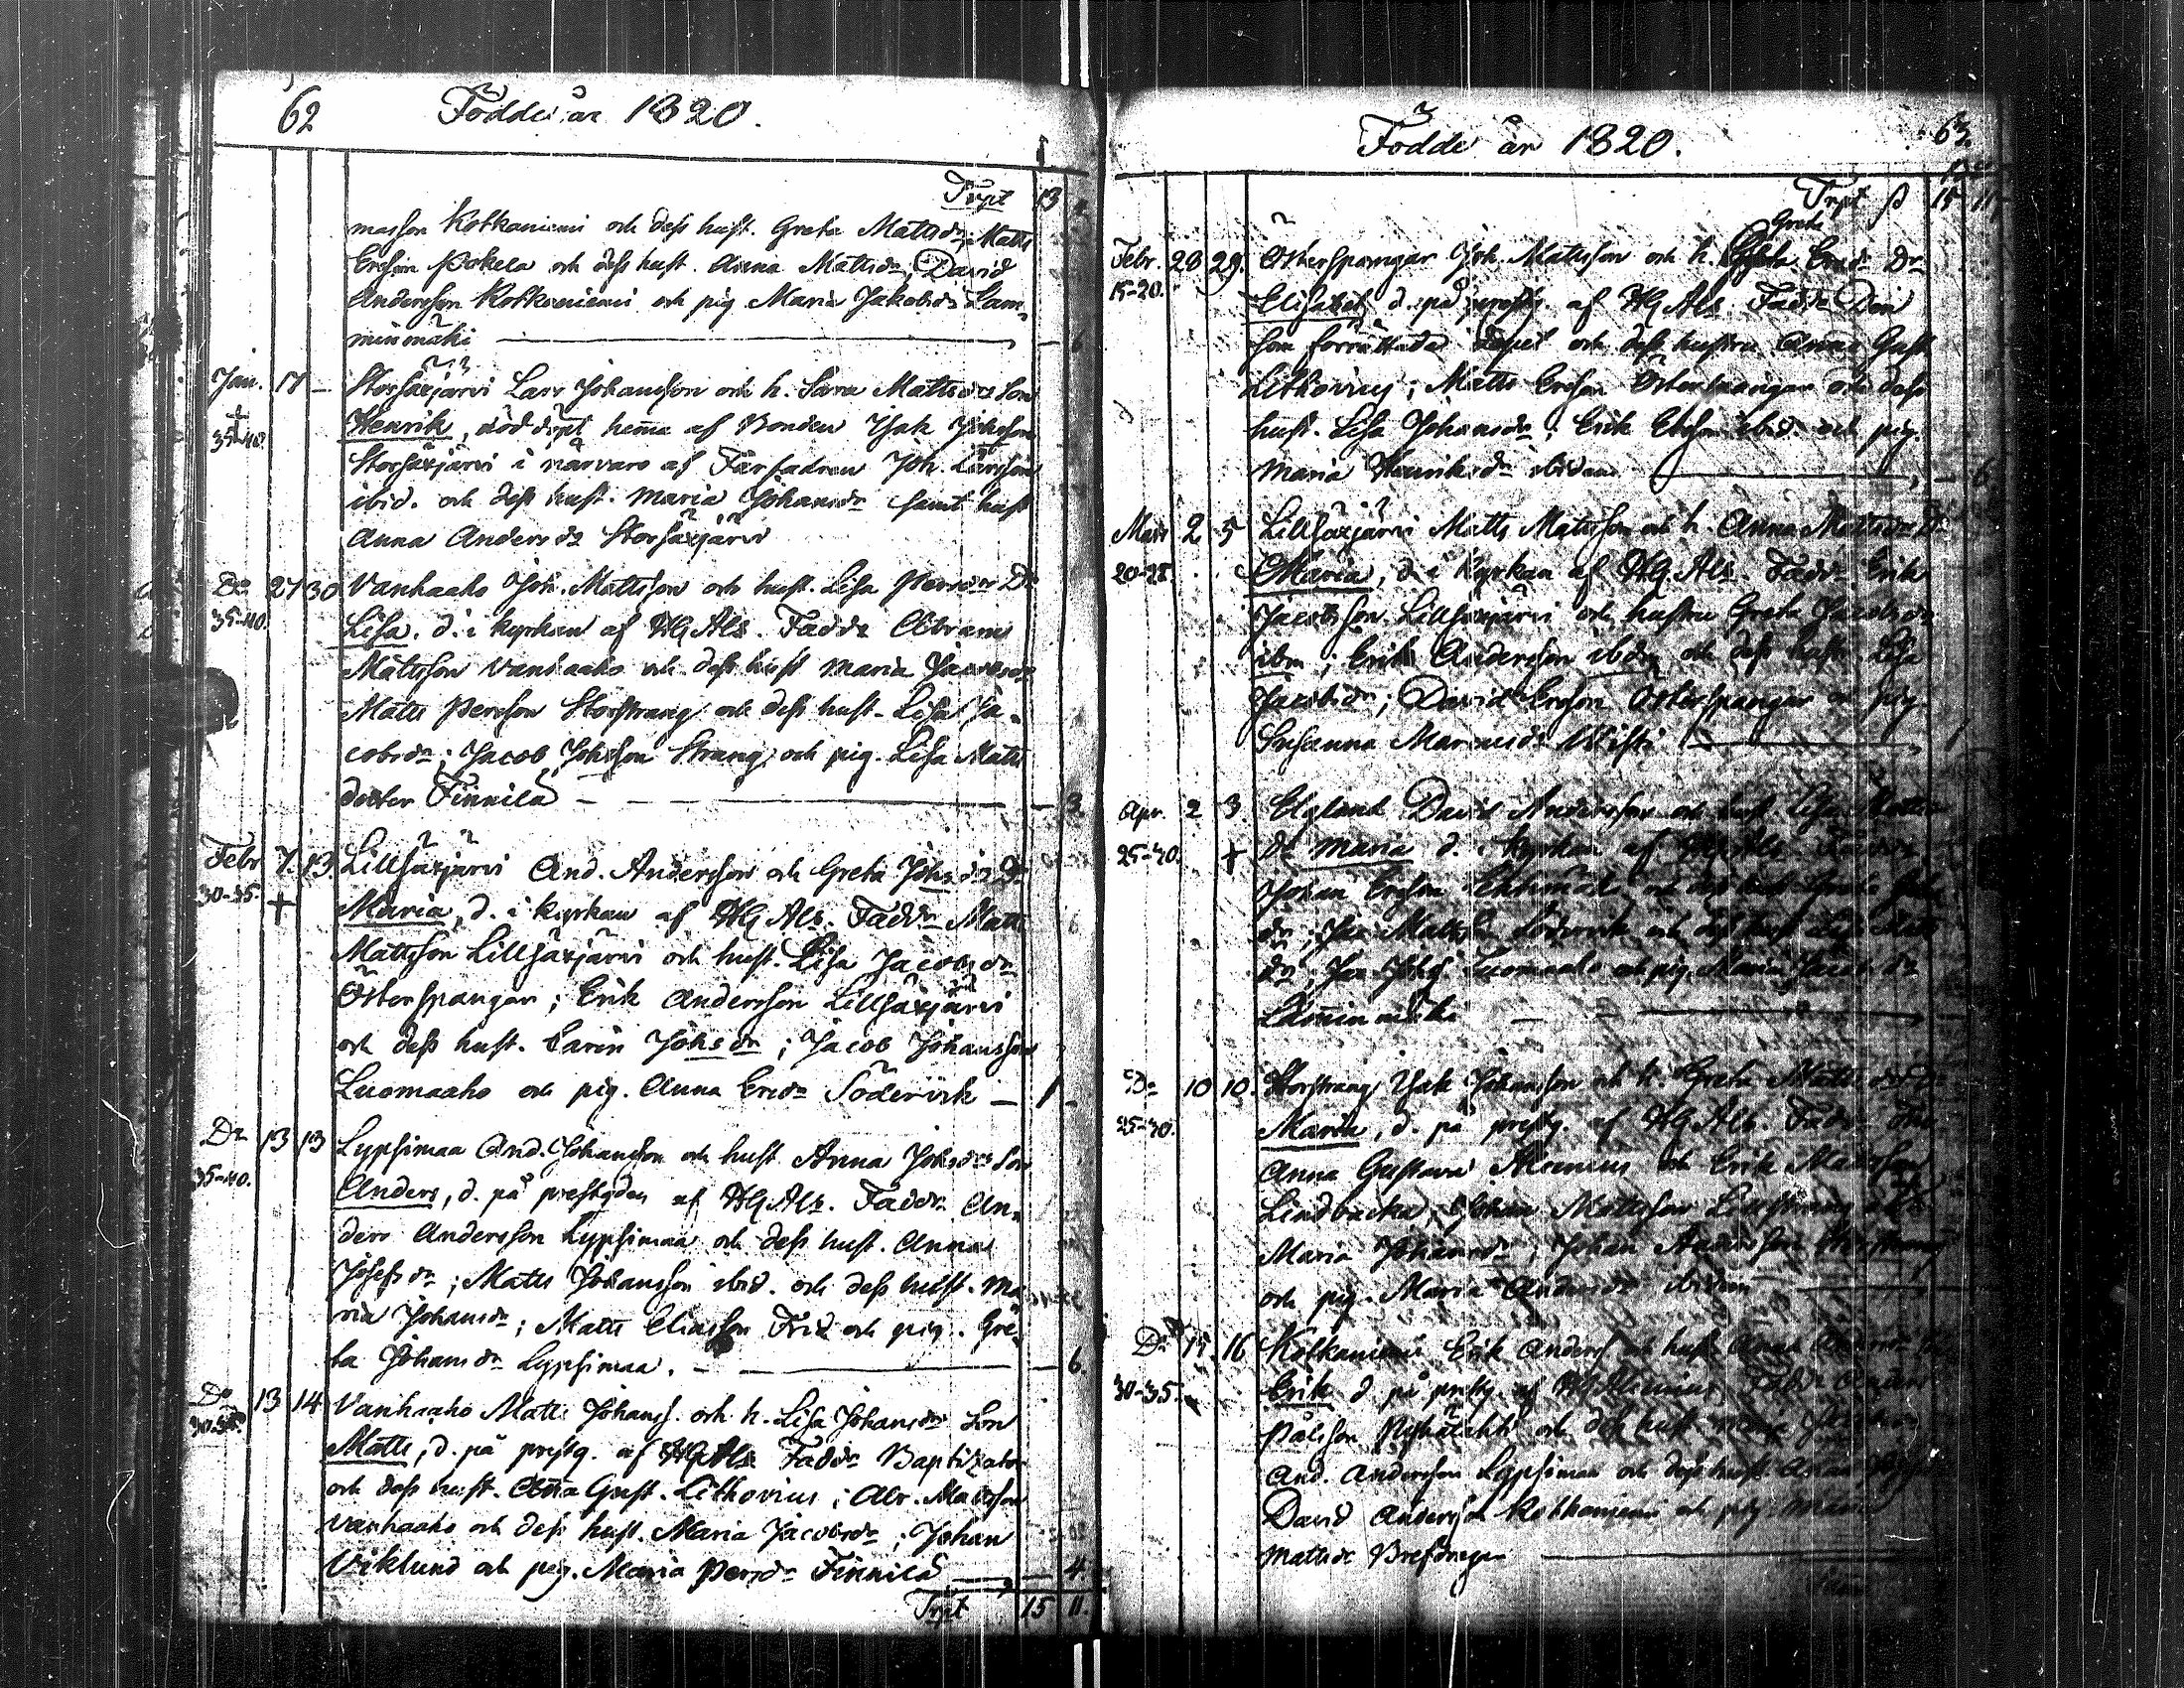 62 Födde år 1820.
Trpt 13
masson Kotkaniemi och dess hust. Greta Mattsdr; Matts
Ersson Pokela och dess hust. Anna Mattsdr; David
Andersson Kotkaniemi och pig. Maria Jakobsdr Lam-
minmäki — 6
Jan. 17 – Storsäxjärvi Lars Johansson och h. Sara Mattsdrs Son
35-40. Henrik, nöddöpt hemma af Bonden Isak Johsson
Storsäxjärvi i närvaro af Farfadren Joh. Larsson
ibid. och dess hust. Maria Johansdr samt hust
Anna Andersdr Storsäxjärvi
Do 27 30 Vanhaaho Joh. Mattsson och hust. Lisa Persdrs Dr
35-40. Lisa, d. i kyrkan af HG Als. Faddr Abram
Mattsson Vanhaaho och dess hust Maria Jacobsdr
Matts Persson Storstrang och dess hust. Lisa Ja-
cobsdr; Jacob Johsson Strang och pig. Lisa Matts
dotter Finnilä — 3
Febr 7. 13 Lillsäxjärvi And. Andersson och Greta Johsdrs Dr
30-35. + Maria, d. i kyrkan af HG Als. Faddr Matts
Mattsson Lillsäxjärvi och hust. Lisa Jacobsdr
Österspangar; Erik Andersson Lillsäxjärvi
och dess hust. Carin Johsdr; Jacob Johansson
Luomaaho och pig. Anna Ersdr Södervik — 1 –
Do 13 13 Lypsimaa And. Johansson och hust Anna Johsdrs Son
35-40. Anders, d. på prestgden af HG Als. Faddr An-
ders Andersson Lypsimaa och dess hust. Anna
Josefsdr; Matts Johansson ibid. och dess hust. Ma
ria Johansdr; Matts Eliasson Frid och pig. Gre-
ta Johansdr Lypsimaa. — 6.
Do 13 14 Vanhaaho Matts Johanss. och h. Lisa Johansdrs Son
30-35. Matts, d. på prestg. af HG Als Faddr Baptizator
och dess hust. Anna Gust. Lithovius; Abr. Mattsson
Vanhaaho och dess hust. Maria Jacobsdr; Johan
Viklund och pig. Maria Persdr Finnilä — 4
Trpt 15 11.
Födde år 1820. 63.
Trpt 15 11
Greta
Febr. 28 29. Österspangar Joh. Mattsson och h. Ersdr Dr
15-20. Elisabet, d. på prestg. af HG Als. Faddr Den
som förrättade Dopet och dess hustru Anna Gust
Lithovius; Matts Ersson Österspangar och dess
hust. Lisa Johansdr; Erik Ersson ibid. och pig.
Maria Henriksdr ibidem — 6.
Mars 2 5 Lillsäxjärvi Matts Mattsson och h. Anna Mattsdrs Dr
20-25. Maria, d. i Kyrkan af HG. Als. Faddr Erik
Jacobsson Lillsäxjärvi och hustru Greta Jacobsdr
ibm; Erik Andersson ibdm och dess hustr Lisa
Jacobsdr; David Ersson Österspangar och pig.
Susanna Mariaedr Wisti — 1
Apr. 2 3 David Andersson och hust. Lisa Matts
25-30. + Dr Maria d. i kyrkan af HG Als. Faddr
Johan Ersson och dess hust Greta
dr; Jac Mattss. Södervik och dess hust Lisa Matts
dr; Luomaaho och pig. Maria Jacobsdr
Lamminmäki —
Do 10 10. Storstrang Isak Johansson och h. Greta Mattsdrs Dr
25-30. Maria, d. på prestg. af HG Als. Faddr
Anna Gustava Alcenius och Erik Mattsson
Lindbacka; Johan Mattsson Lillstrang och
Maria Johansdr; Johan Andersson Storstrang
och pig. Maria Andersdr ibidem —
Do 15 16 Kotkaniemi Erik Anderss och hust Anna
30-35. Erik d. på prestg. af HG Alcenius, Faddr Anders
Pålsson och dess hust
And. Andersson Lypsimaa och dess hust Anna
David Andersson Kotkaniemi och pig. Maria
Mattsdr —